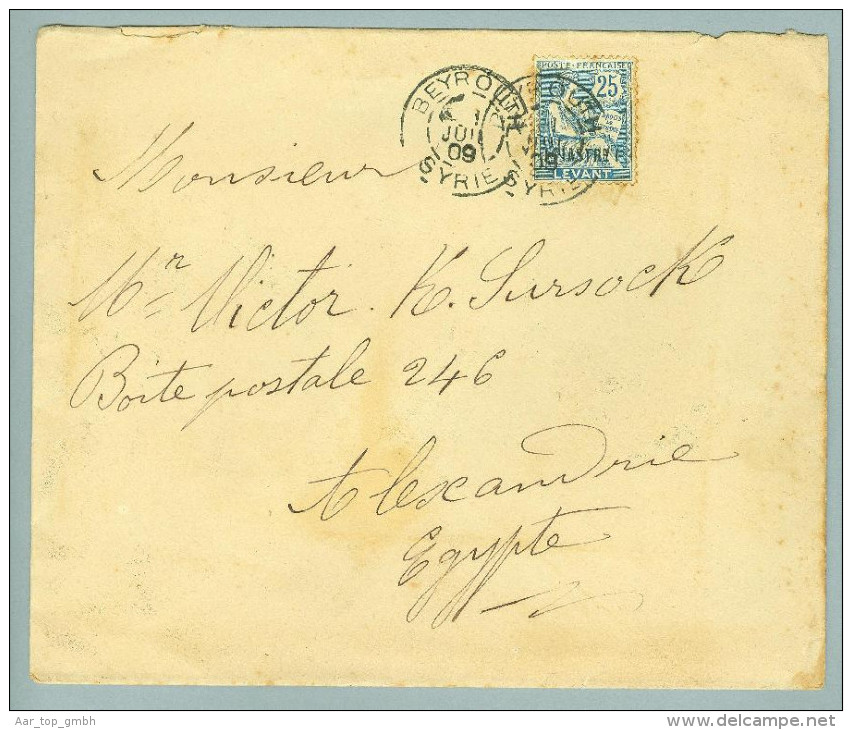 BEYROUTH
1
JUI
09
SYRIE
POSTE FRANÇAISE
25
PIASTRE
LEVANT
Monsieur
Mr Victor. K. Sursock
Boite postale 246
Alexandrie
Egypte
Aar_top_gmbh
delcampe.net